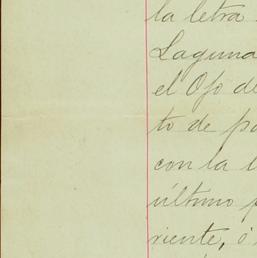 la letra
Laguna
el Ojo de
to de pa
con la l
último p
riente, ó